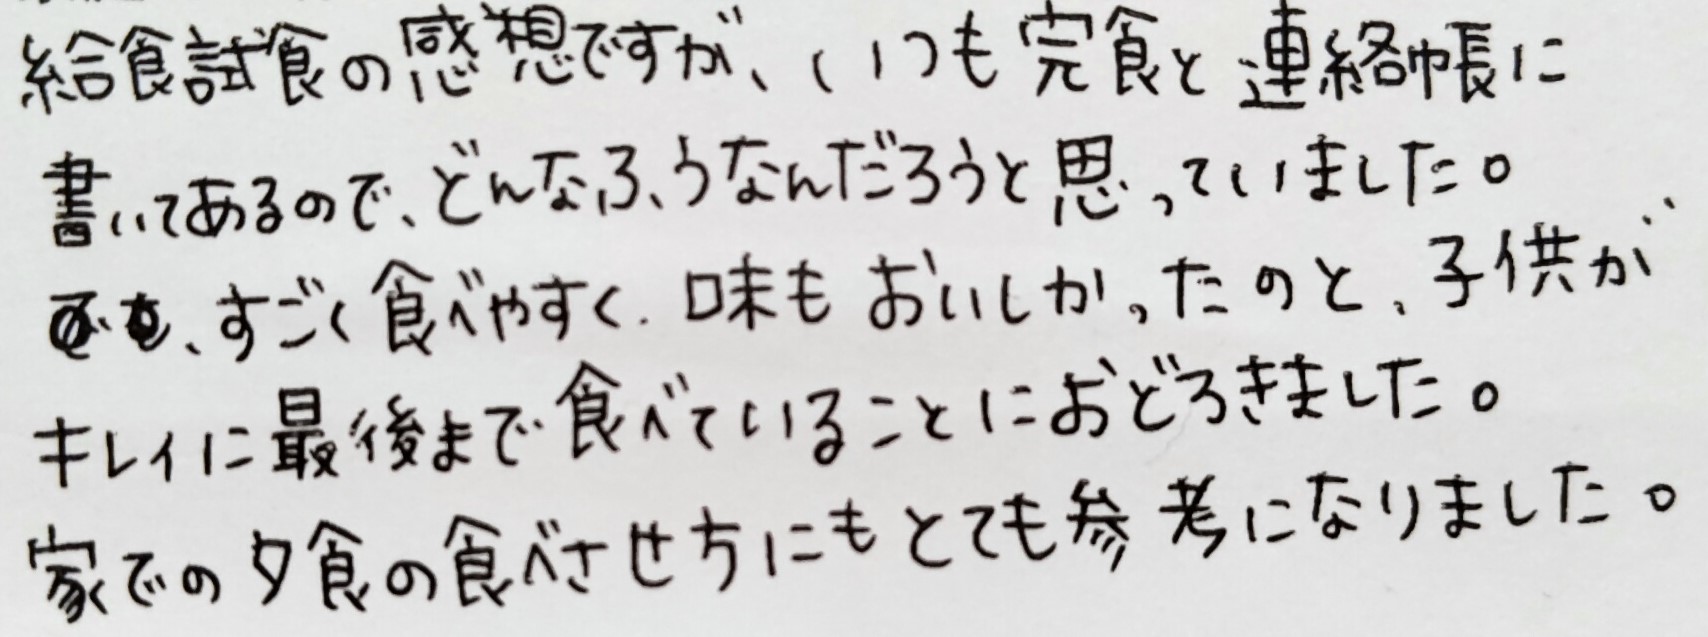 給食試食の感想ですが、いつも完食と連絡帳に
書いてあるので、どんなふうなんだろうと思っていました。
でも、すごく食べやすく、味もおいしかったのと、子供が
キレイに最後まで食べていることにおどろきました。
家での夕食の食べさせ方にもとても参考になりました。